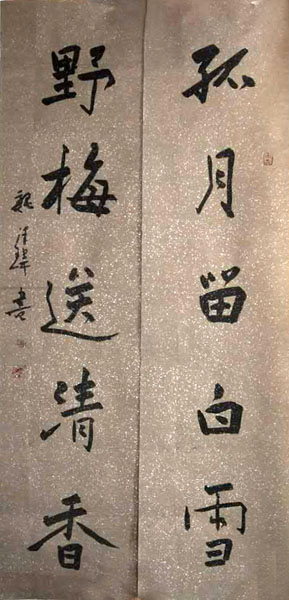 孤月留白雪
野梅送清香